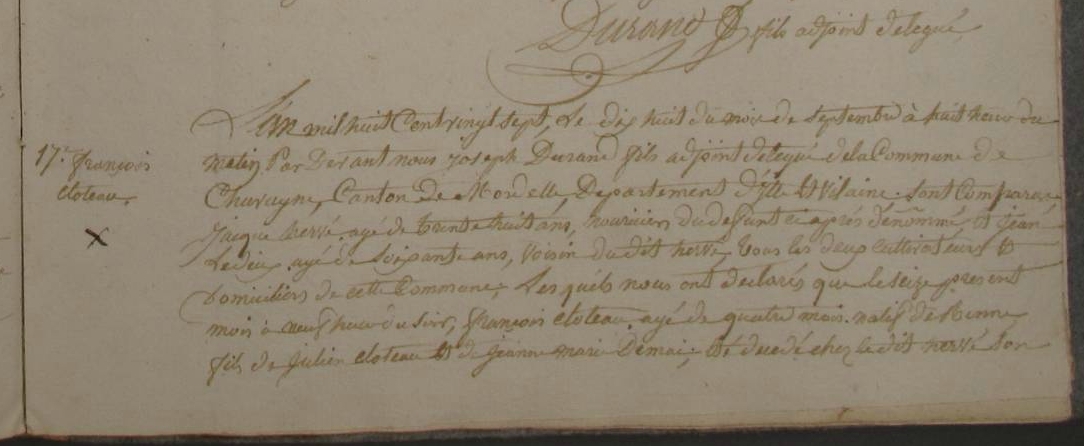 Durand fils adjoint delegué
17.e françois
Cloteau.
L'an mil huit Cent vingt sept, Le dix huit du mois de Septembre à huit heures du
matin, Par Devant nous joseph Durand fils adjoint delegué de la Commune de
Chavagne, Canton de Mordelle, Departement d'Ille et Vilaine. Sont Comparus
jacque hervé agé de trente huit ans, nouricier du defunt ci après dénommé, et jean
Ledieu agé de Soixante ans, Voisin du dit hervé, tous les deux cultivateurs et
Domiciliés de cette Commune; Les quels nous ont declarés que le seize present
mois à neuf heure du Soir, françois Cloteau, agé de quatre mois natif de Renne
fils de julien Cloteau et de jeanne marie Demai; est decedé chez le dit hervé Son